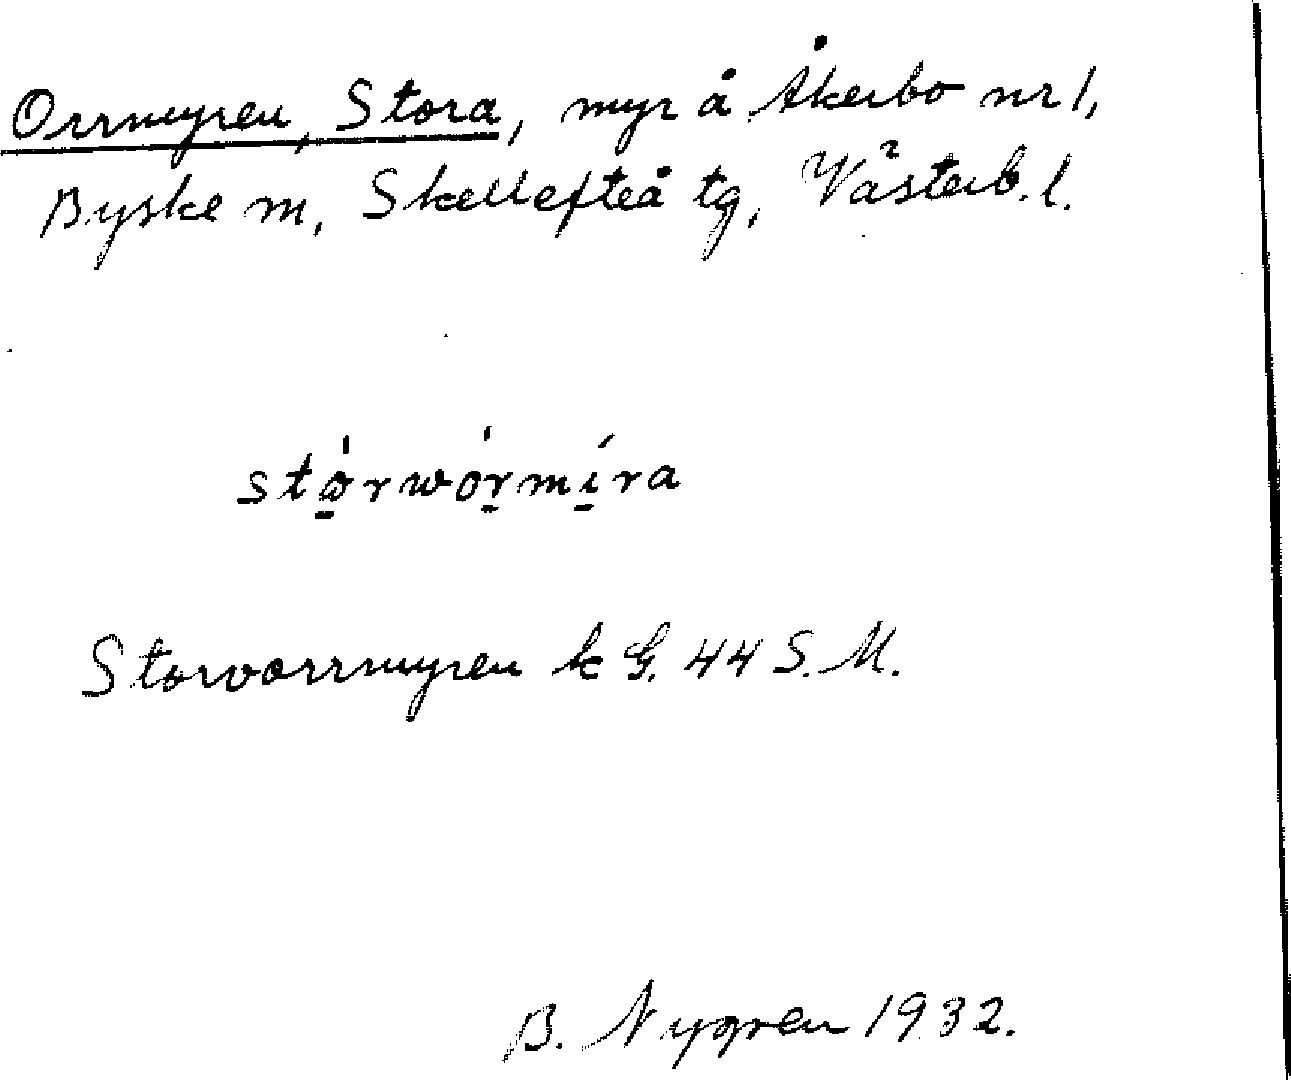 Orrmyren, Stora, myr å Åkerbo nr 1,
Byske sn, Skellefteå tg, Västerb. l.
stọ́rwórṃị́ra
Storvorrmyren k G. 44 S. M.
B. Nygren 1932.